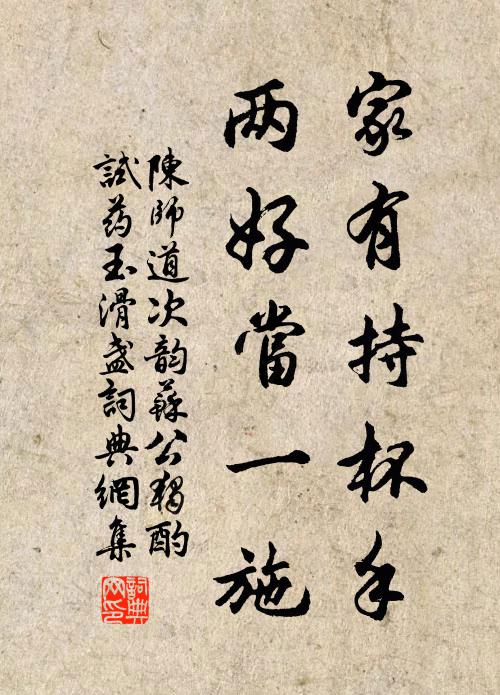 家有持杯手
两好當一施
陳師道次韵蘇公獨酌
試药玉滑盏詞典網集
詞典網印